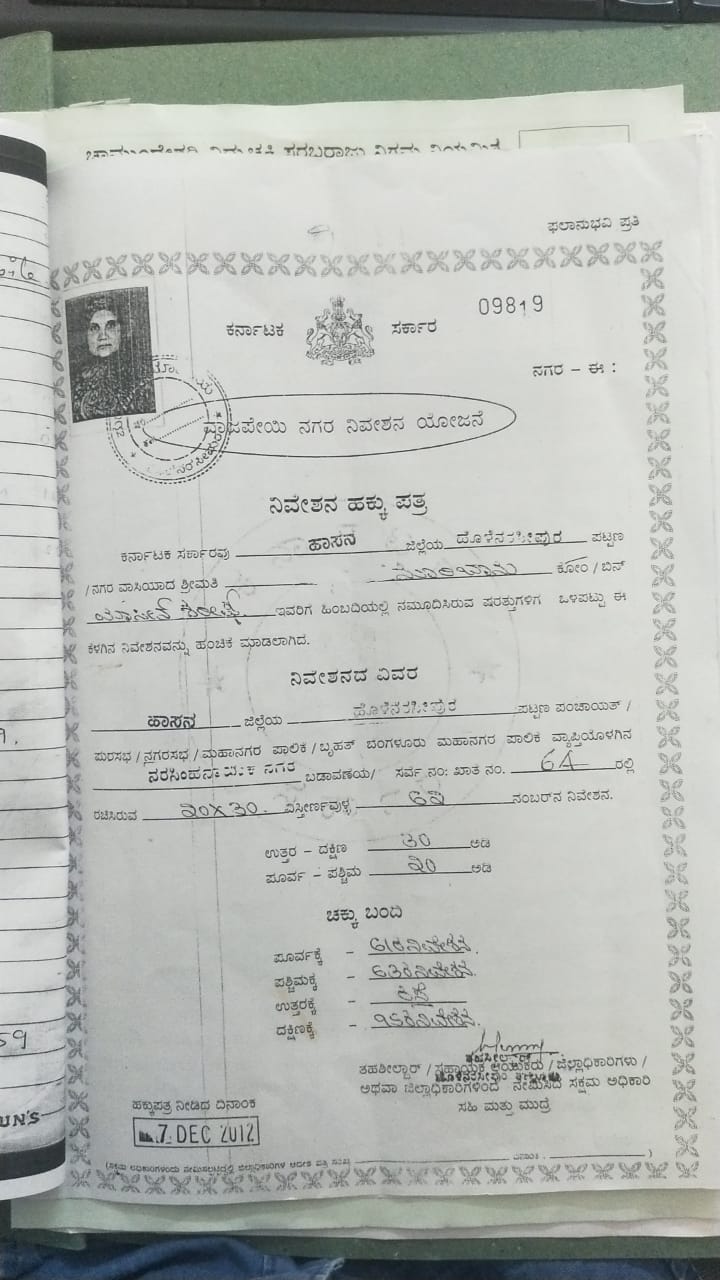 ಫಲಾನುಭವಿ ಪ್ರತಿ
09819
ಕರ್ನಾಟಕ ಸರ್ಕಾರ
ನಗರ - ಈ :
ವಾಜಪೇಯಿ ನಗರ ನಿವೇಶನ ಯೋಜನೆ
ನಿವೇಶನ ಹಕ್ಕು ಪತ್ರ
ಕರ್ನಾಟಕ ಸರ್ಕಾರವು ಹಾಸನ ಜಿಲ್ಲೆಯ ಹೊಳೆನರಸೀಪುರ ಪಟ್ಟಣ
/ನಗರ ವಾಸಿಯಾದ ಶ್ರೀಮತಿ ಕೋಂ / ಬಿನ್
ಇವರಿಗೆ ಹಿಂಬದಿಯಲ್ಲಿ ನಮೂದಿಸಿರುವ ಷರತ್ತುಗಳಿಗೆ ಒಳಪಟ್ಟು ಈ
ಕೆಳಗಿನ ನಿವೇಶನವನ್ನು ಹಂಚಿಕೆ ಮಾಡಲಾಗಿದೆ.
ನಿವೇಶನದ ವಿವರ
ಹಾಸನ ಜಿಲ್ಲೆಯ ಹೊಳೆನರಸೀಪುರ ಪಟ್ಟಣ ಪಂಚಾಯತ್ /
ಪುರಸಭೆ / ನಗರಸಭೆ / ಮಹಾನಗರ ಪಾಲಿಕೆ / ಬೃಹತ್ ಬೆಂಗಳೂರು ಮಹಾನಗರ ಪಾಲಿಕೆ ವ್ಯಾಪ್ತಿಯೊಳಗಿನ
ನರಸಿಂಹನಾಯಕ ನಗರ ಬಡಾವಣೆಯ/ ಸರ್ವೆ ನಂ: ಖಾತೆ ನಂ. 64 ರಲ್ಲಿ
ರಚಿಸಿರುವ ೨೦X೩೦. ವಿಸ್ತೀರ್ಣವುಳ್ಳ ೬೨ ನಂಬರ್‌ನ ನಿವೇಶನ.
ಉತ್ತರ - ದಕ್ಷಿಣ ೩೦ ಅಡಿ
ಪೂರ್ವ - ಪಶ್ಚಿಮ ೨೦ ಅಡಿ
ಚಕ್ಕು ಬಂದಿ
ಪೂರ್ವಕ್ಕೆ - ೬೧ನೆ ನಿವೇಶನ.
ಪಶ್ಚಿಮಕ್ಕೆ - ೬೩ನೆ ನಿವೇಶನ.
ಉತ್ತರಕ್ಕೆ - ರಸ್ತೆ
ದಕ್ಷಿಣಕ್ಕೆ - ನಿವೇಶನ.
ತಹಶೀಲ್ದಾರ್ / ಸಹಾಯಕ ಆಯುಕರು / ಜಿಲ್ಲಾಧಿಕಾರಿಗಳು /
ಅಥವಾ ಜಿಲ್ಲಾಧಿಕಾರಿಗಳಿಂದ ನೇಮಿಸಿದ ಸಕ್ಷಮ ಅಧಿಕಾರಿ
ಸಹಿ ಮತ್ತು ಮುದ್ರೆ
ಹಕ್ಕುಪತ್ರ ನೀಡಿದ ದಿನಾಂಕ
7 DEC 2012
59
UN'S